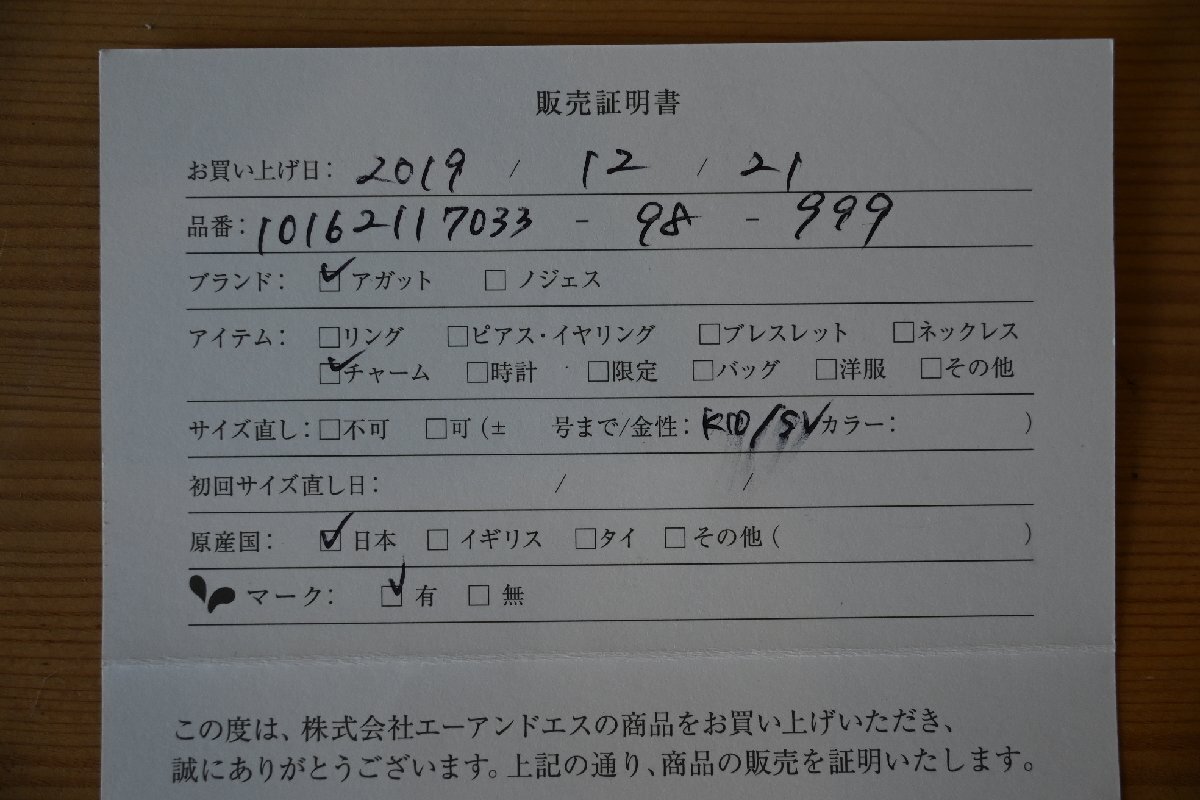 販売証明書
お買い上げ日： 2019 / 12 / 21
品番： 10162117033 - 98 - 999
ブランド： ☑アガット □ノジェス
アイテム： □リング □ピアス・イヤリング □ブレスレット □ネックレス
☑チャーム □時計 □限定 □バッグ □洋服 □その他
サイズ直し：□不可 □可（± 号まで/金性：K10/SVカラー： ）
初回サイズ直し日： / /
原産国： ☑日本 □イギリス □タイ □その他（ ）
マーク： ☑有 □無
この度は、株式会社エーアンドエスの商品をお買い上げいただき、
誠にありがとうございます。上記の通り、商品の販売を証明いたします。